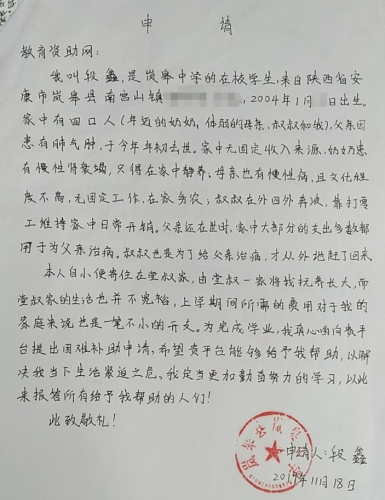 申 请
教育资助网：
我叫段鑫，是岚皋中学的在校学生，来自陕西省安
康市岚皋县南宫山镇 ，2004年1月 日出生。
家中有四口人（年迈的奶奶，体弱的母亲，叔叔和我），父亲因
患有肺气肿，于今年年初去世。家中无固定收入来源，奶奶患
有慢性肾衰竭，只得在家中静养，母亲也有慢性病，且文化程
度不高，无固定工作，在家务农；叔叔在外四处奔波，靠打零
工维持家中日常开销。父亲还在世时，家中大部分的支出多数都
用于为父亲治病。叔叔也是为了给父亲治病，才从外地赶了回来。
本人自小便寄住在堂叔家，由堂叔一家将我抚养长大，而
堂叔家的生活也并不宽裕，上学期间所需的费用对于我的
家庭来说也是一笔不小的开支。为完成学业，我真心的向贵平
台提出困难补助申请，希望贵平台能够给予我帮助，以解
决我当下生活紧迫之危，我定当更加勤奋努力的学习，以此
来报答所有给予我帮助的人们！
此致敬礼！
申请人：段鑫
年11月18日